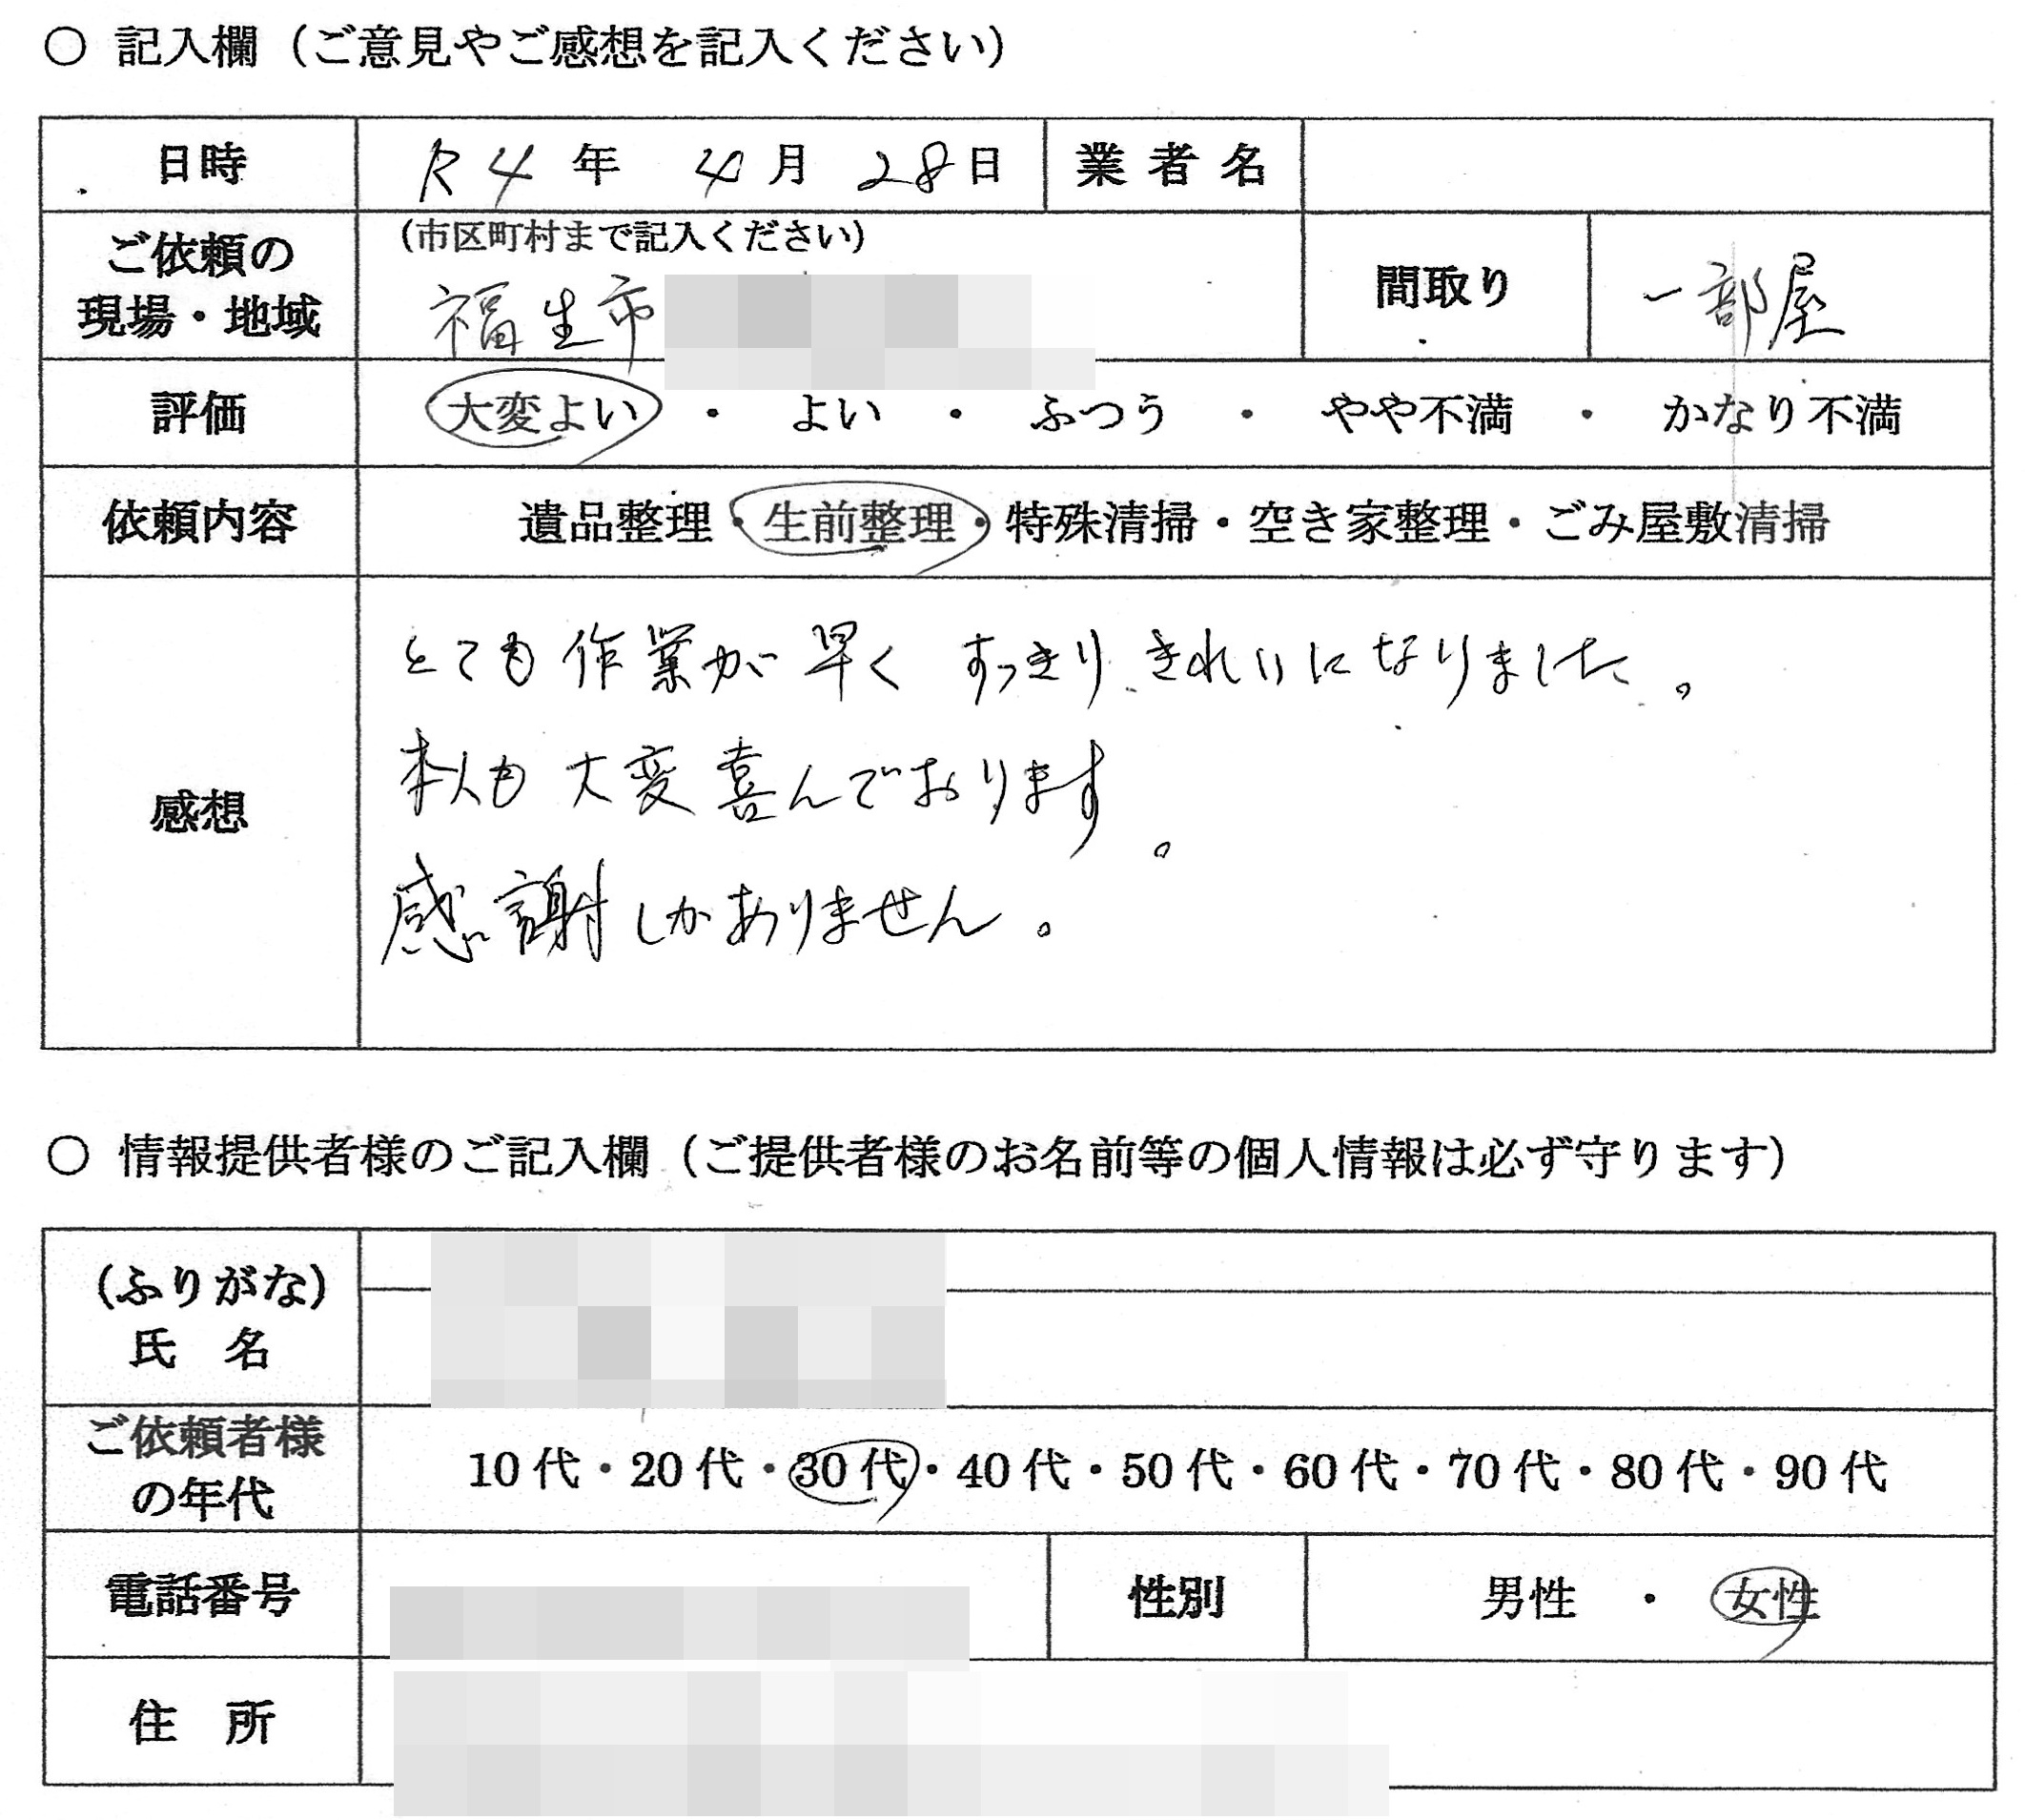 ○ 記入欄（ご意見やご感想を記入ください）
日時 R4年 4月 28日 業者名
ご依頼の現場・地域 （市区町村まで記入ください） 福生市 間取り 一部屋
評価 大変よい ・ よい ・ ふつう ・ やや不満 ・ かなり不満
依頼内容 遺品整理・生前整理・特殊清掃・空き家整理・ごみ屋敷清掃
感想
とても作業が早く すっきり きれいになりました。
本人も大変喜んでおります。
感謝しかありません。
○ 情報提供者様のご記入欄（ご提供者様のお名前等の個人情報は必ず守ります）
（ふりがな）
氏 名
ご依頼者様の年代 10代・20代・30代・40代・50代・60代・70代・80代・90代
電話番号 性別 男性 ・ 女性
住 所